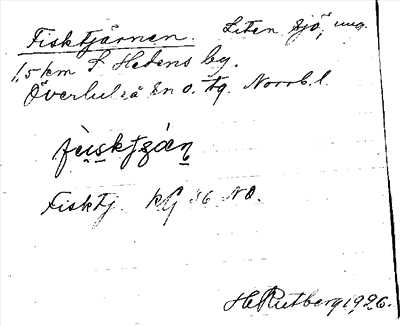 Fisktjärnen. Liten sjö, ung.
1,5 km S Hedens by.
Överluleå sn o. tg. Norrb. l.
fìskt̯ʒæ̀n̥
Fisktj. KG 56 NO.
H Rutberg 1926.